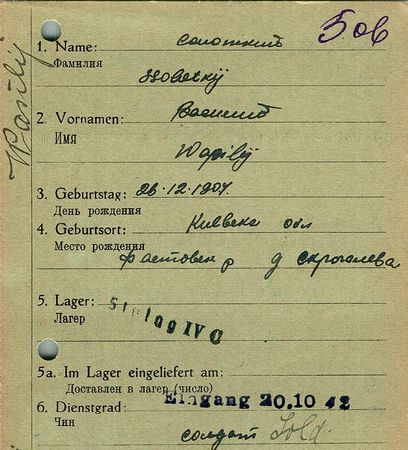 506
1. Name:
Фамилия
2. Vornamen:
Имя
Wasilij
3. Geburtstag: 26.12.1907.
День рождения
4. Geburtsort: Киевска обл
Место рождения
д
5. Lager: Stalag IV
Лагер
5a. Im Lager eingeliefert am:
Доставлен в лагер (число)
Eingang 20.10 42
6. Dienstgrad:
Чин
солдат Sold.